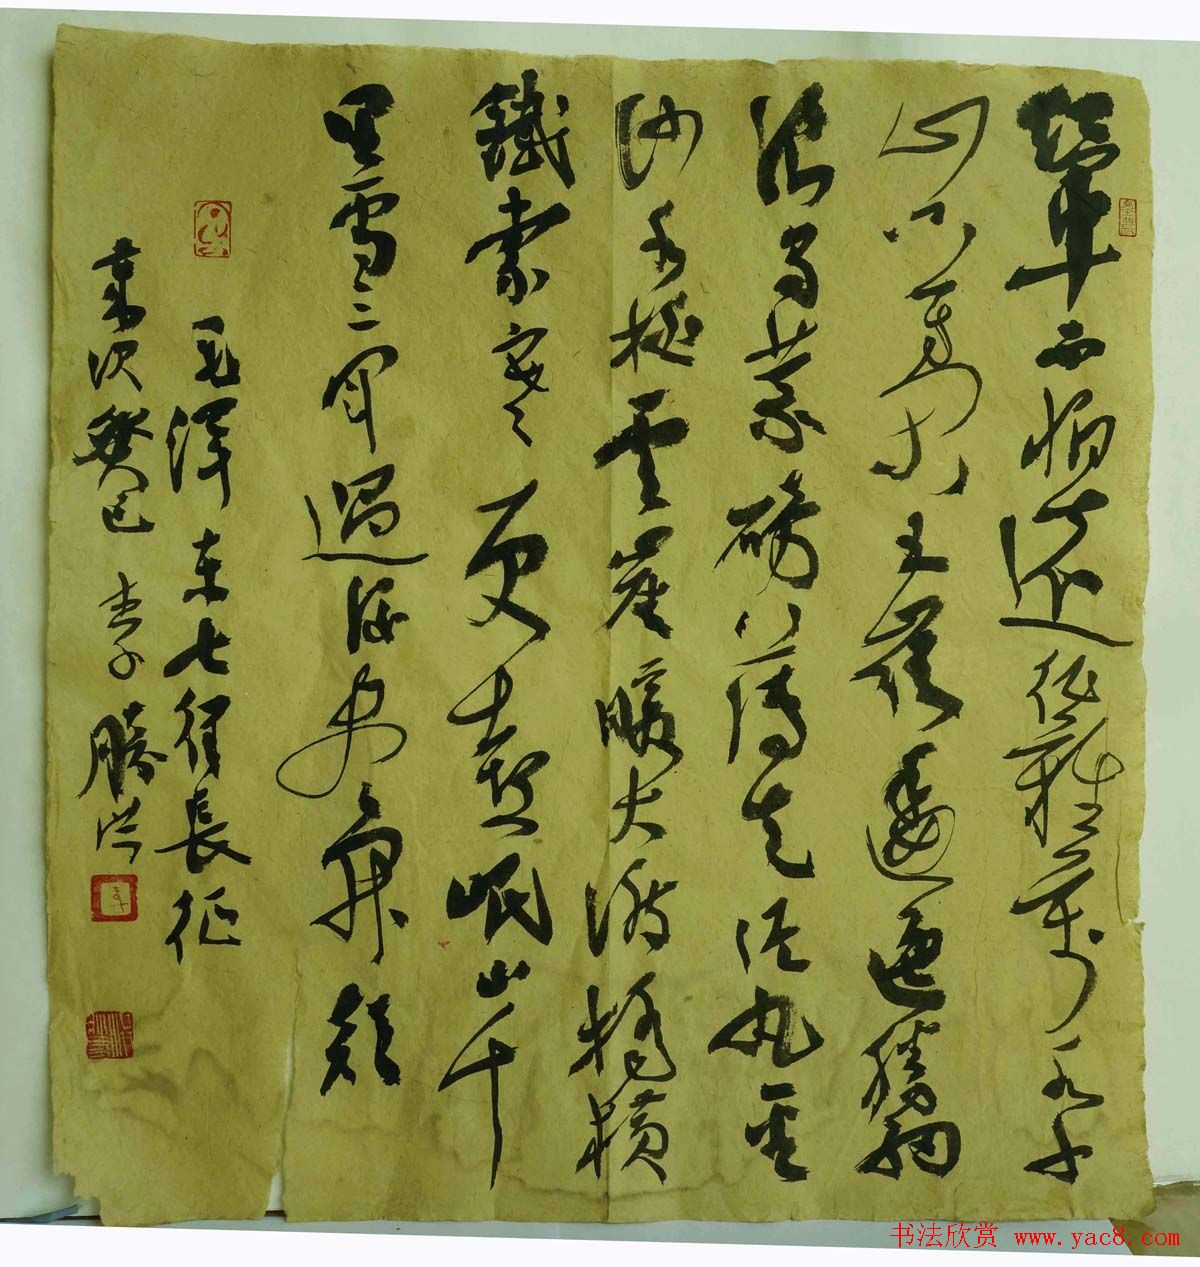 紅軍不怕遠征難萬水千
山只等閒五嶺逶迤騰細
浪烏蒙磅礴走泥丸金
沙水拍雲崖暖大渡橋橫
鐵索寒更喜岷山千
里雪三軍過後盡開顏
毛澤东七律長征
歲次癸巳 李勝洪
书法欣赏 www.yac8.com